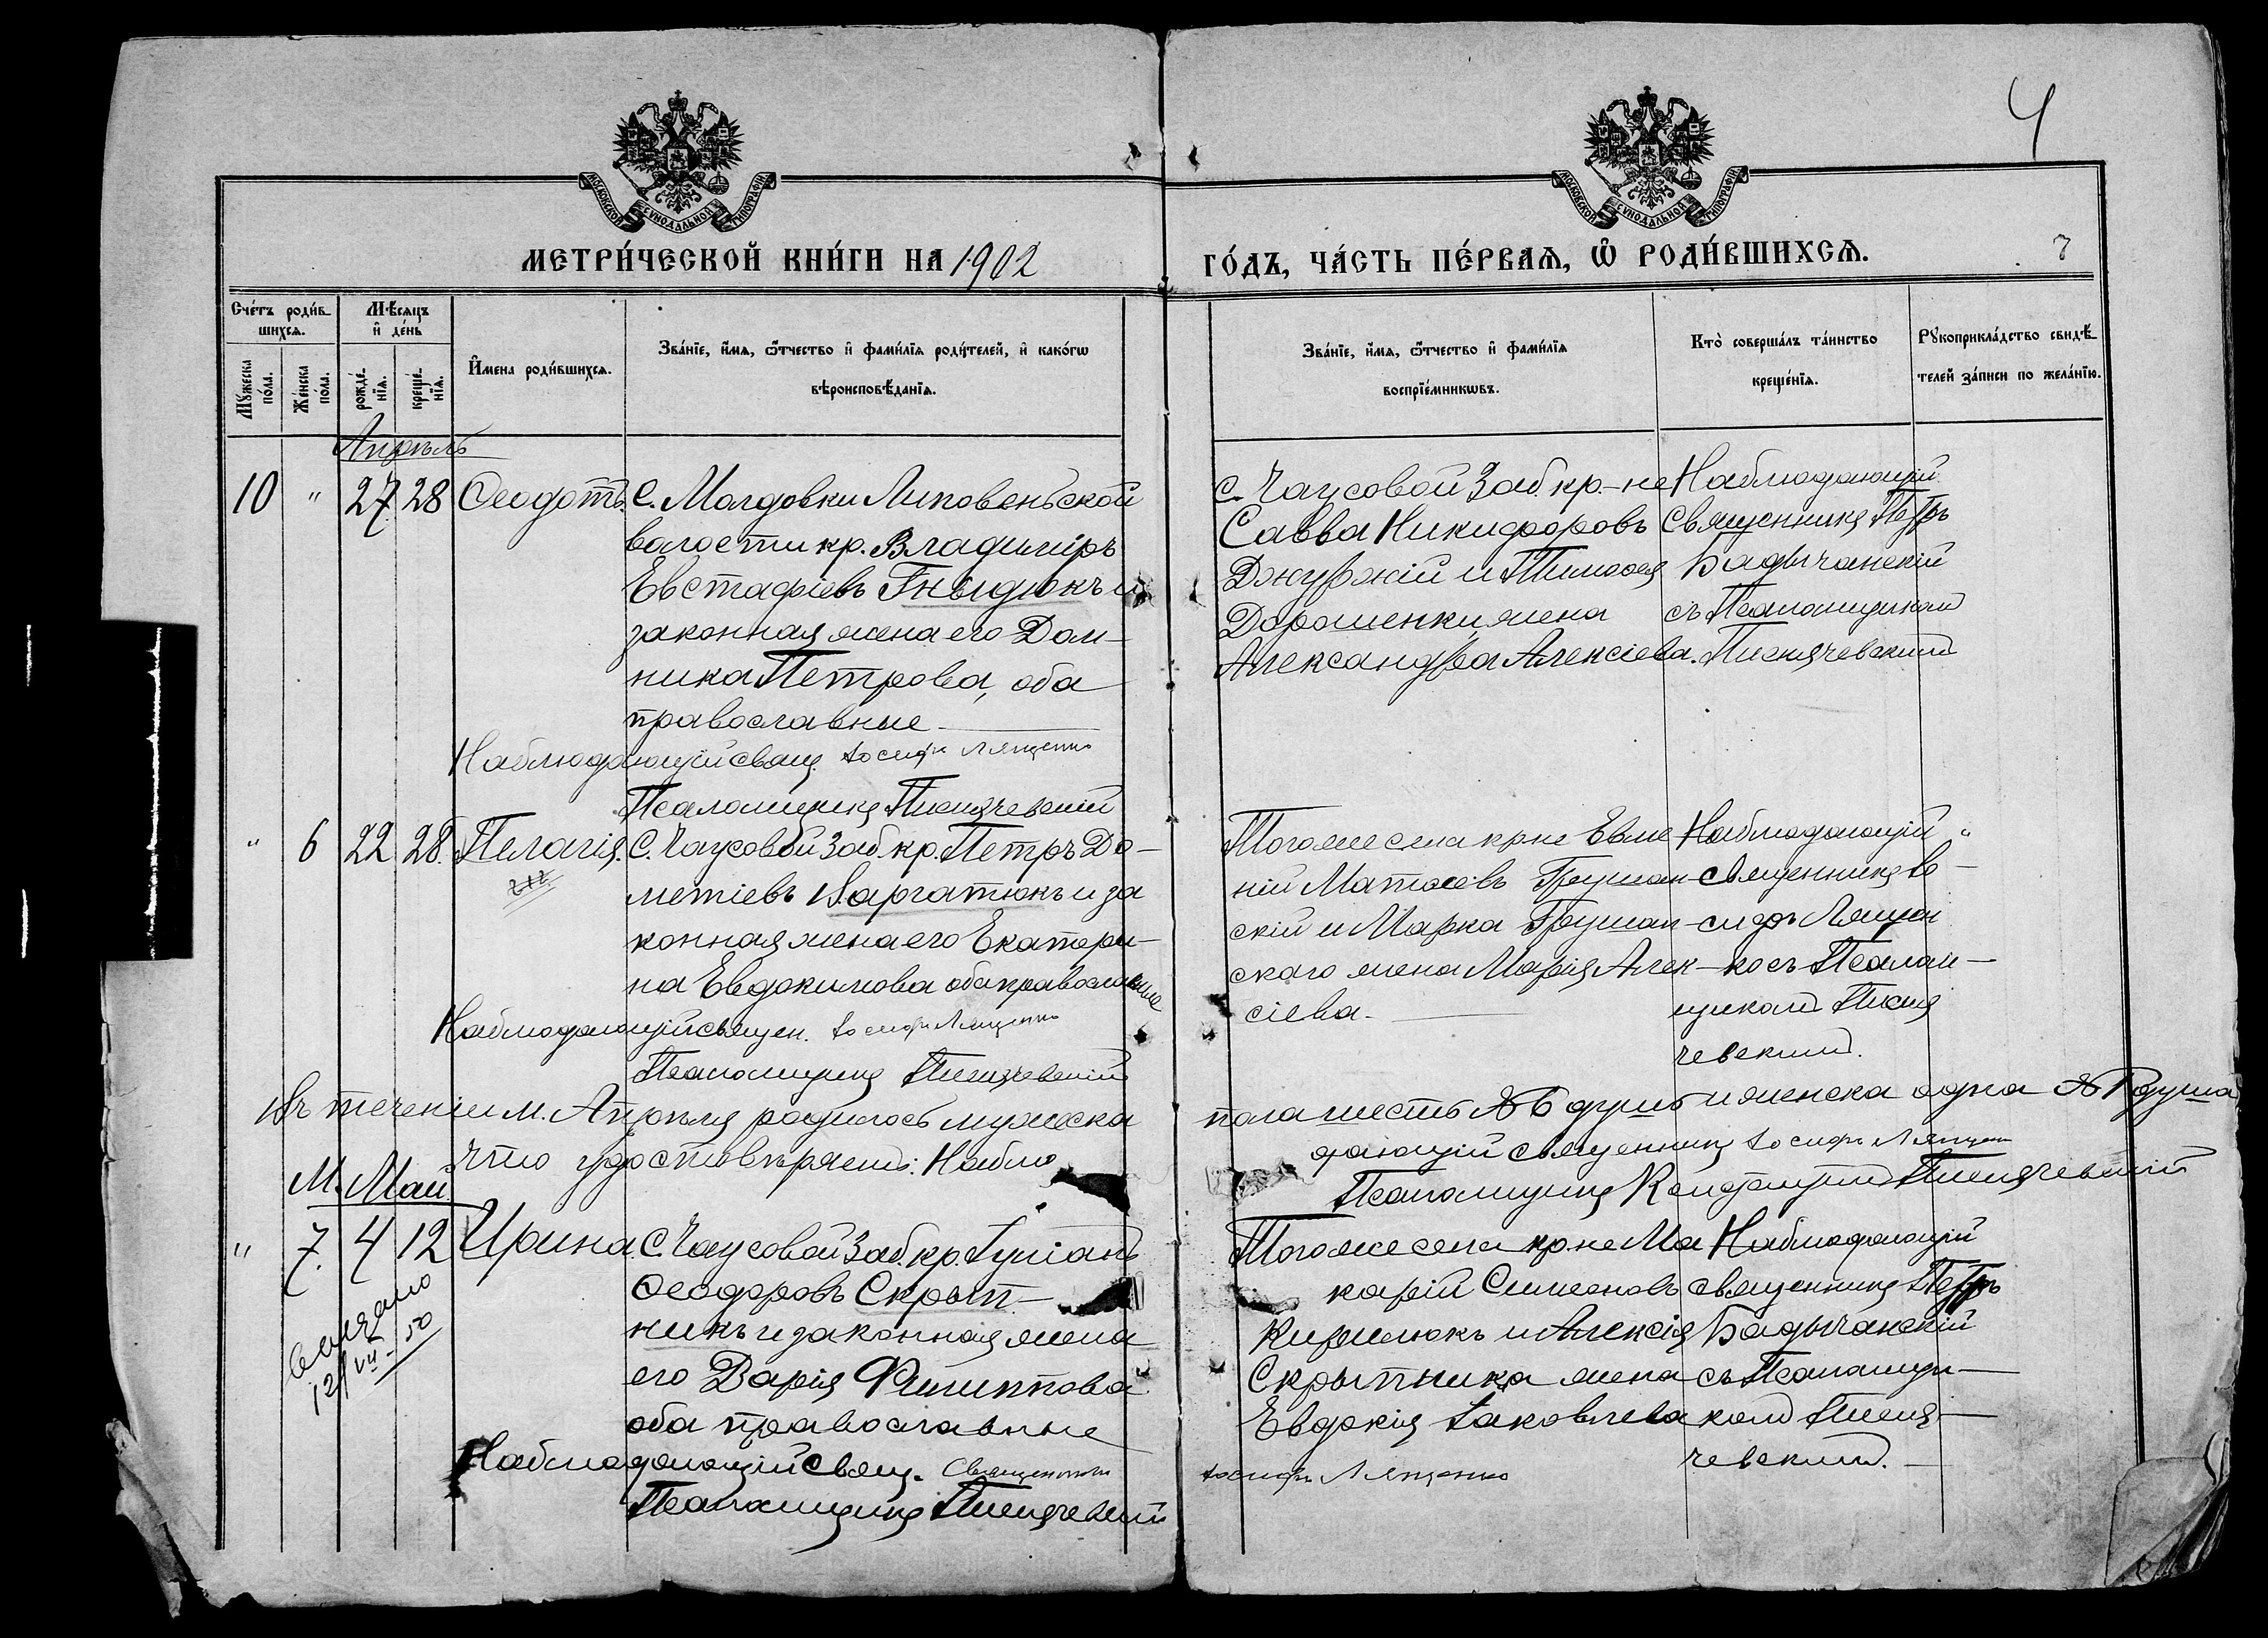 4
МОСКОВСКОЙ СѴНОДАЛЬНОЙ ТИПОГРАФІИ
МОСКОВСКОЙ СѴНОДАЛЬНОЙ ТИПОГРАФІИ
МЕТРИ́ЧЕСКОЙ КНИ́ГИ НА 1902
ГО́ДЪ, ЧА́СТЬ ПЕ́РВАѦ, Ѡ҆ РОДИ́ВШИХСѦ.
7
Сче́тъ роди́в-
шихсѧ.
Мѣ́сѧцъ
и҆ де́нь
Мꙋ́жеска
по́ла.
Же́нска
по́ла.
рожде́-
нїѧ.
креще́-
нїѧ.
И҆мена роди́вшихсѧ.
Зва́нїе, и҆́мѧ, ѻ҆́тчество и҆ фами́лїѧ роди́телей, и҆ како́гѡ
вѣроисповѣ́данїѧ.
Зва́нїе, и҆́мѧ, ѻ҆́тчество и҆ фами́лїѧ
воспрїе́мникѡвъ.
Кто̀ соверша́лъ та́инство
креще́нїѧ.
Рꙋкоприкла́дство свидѣ́-
телей за́писи по жела́нїю.
Апрѣль
10 " 27 28 Ѳеодотъ. С. Молдовки Липовеньской
волости кр. Владиміръ
Евстафіевъ Гныдюкъ и
законная жена его Дом-
ника Петрова, оба
православные
Наблюдающій свящ. Іосифъ Лященко
Псаломщикъ Писнячевскій
с. Чаусовой Заб. кр-не
Савва Никифоровъ
Джуржій и Тимоѳея
Дорошенки жена
Александра Алексіева.
Наблюдающій
Священникъ Петръ
Бадычанскій
съ Псаломщикомъ
Писнячевскимъ
" 6 22 28. Пелагія. С. Чаусовой Заб. кр. Петръ До-
метіевъ Варгатюкъ и за
конная жена его Екатери-
на Евдокимова оба православные
Наблюдающій священ. Іосифъ Лященко
Псаломщикъ Писнячевскій
Тогоже села кр-не Евме
ній Матѳеевъ Грушан-
скій и Марка Грушан-
скаго жена Марія Алек-
сіева.
Наблюдающій
священникъ Іо-
сифъ Лящен
ко съ Псалом-
щикомъПисня
чевскимъ.
Въ теченіи м. Апрѣля родилось мужеска пола шесть № 6 душъ и женска одна № 1 душа
что удостовѣряемъ: Наблюдающій священникъ Іосифъ Лященко
Псаломщикъ Писнячевскій
М. Май.
" 7. 4 12 Ирина. С. Чаусовой Заб. кр. Іуліанъ
Ѳеодоровъ Скрып-
никъ и законная жена
его Дарія Филиппова
оба православные
12/VII-50
Наблюдающій Свящ. Священникъ Іосифъ Лященко
Псаломщикъ Писнячевскій
Тогоже села кр-не Ма
карій Симеоновъ
Кирилюкъ и Алексія
Скрыпника жена
Евдокія Іаковлева
Наблюдающій
священникъ Петръ
Бадычанскій
съ Псаломщи-
комъ Писня-
чевскимъ.